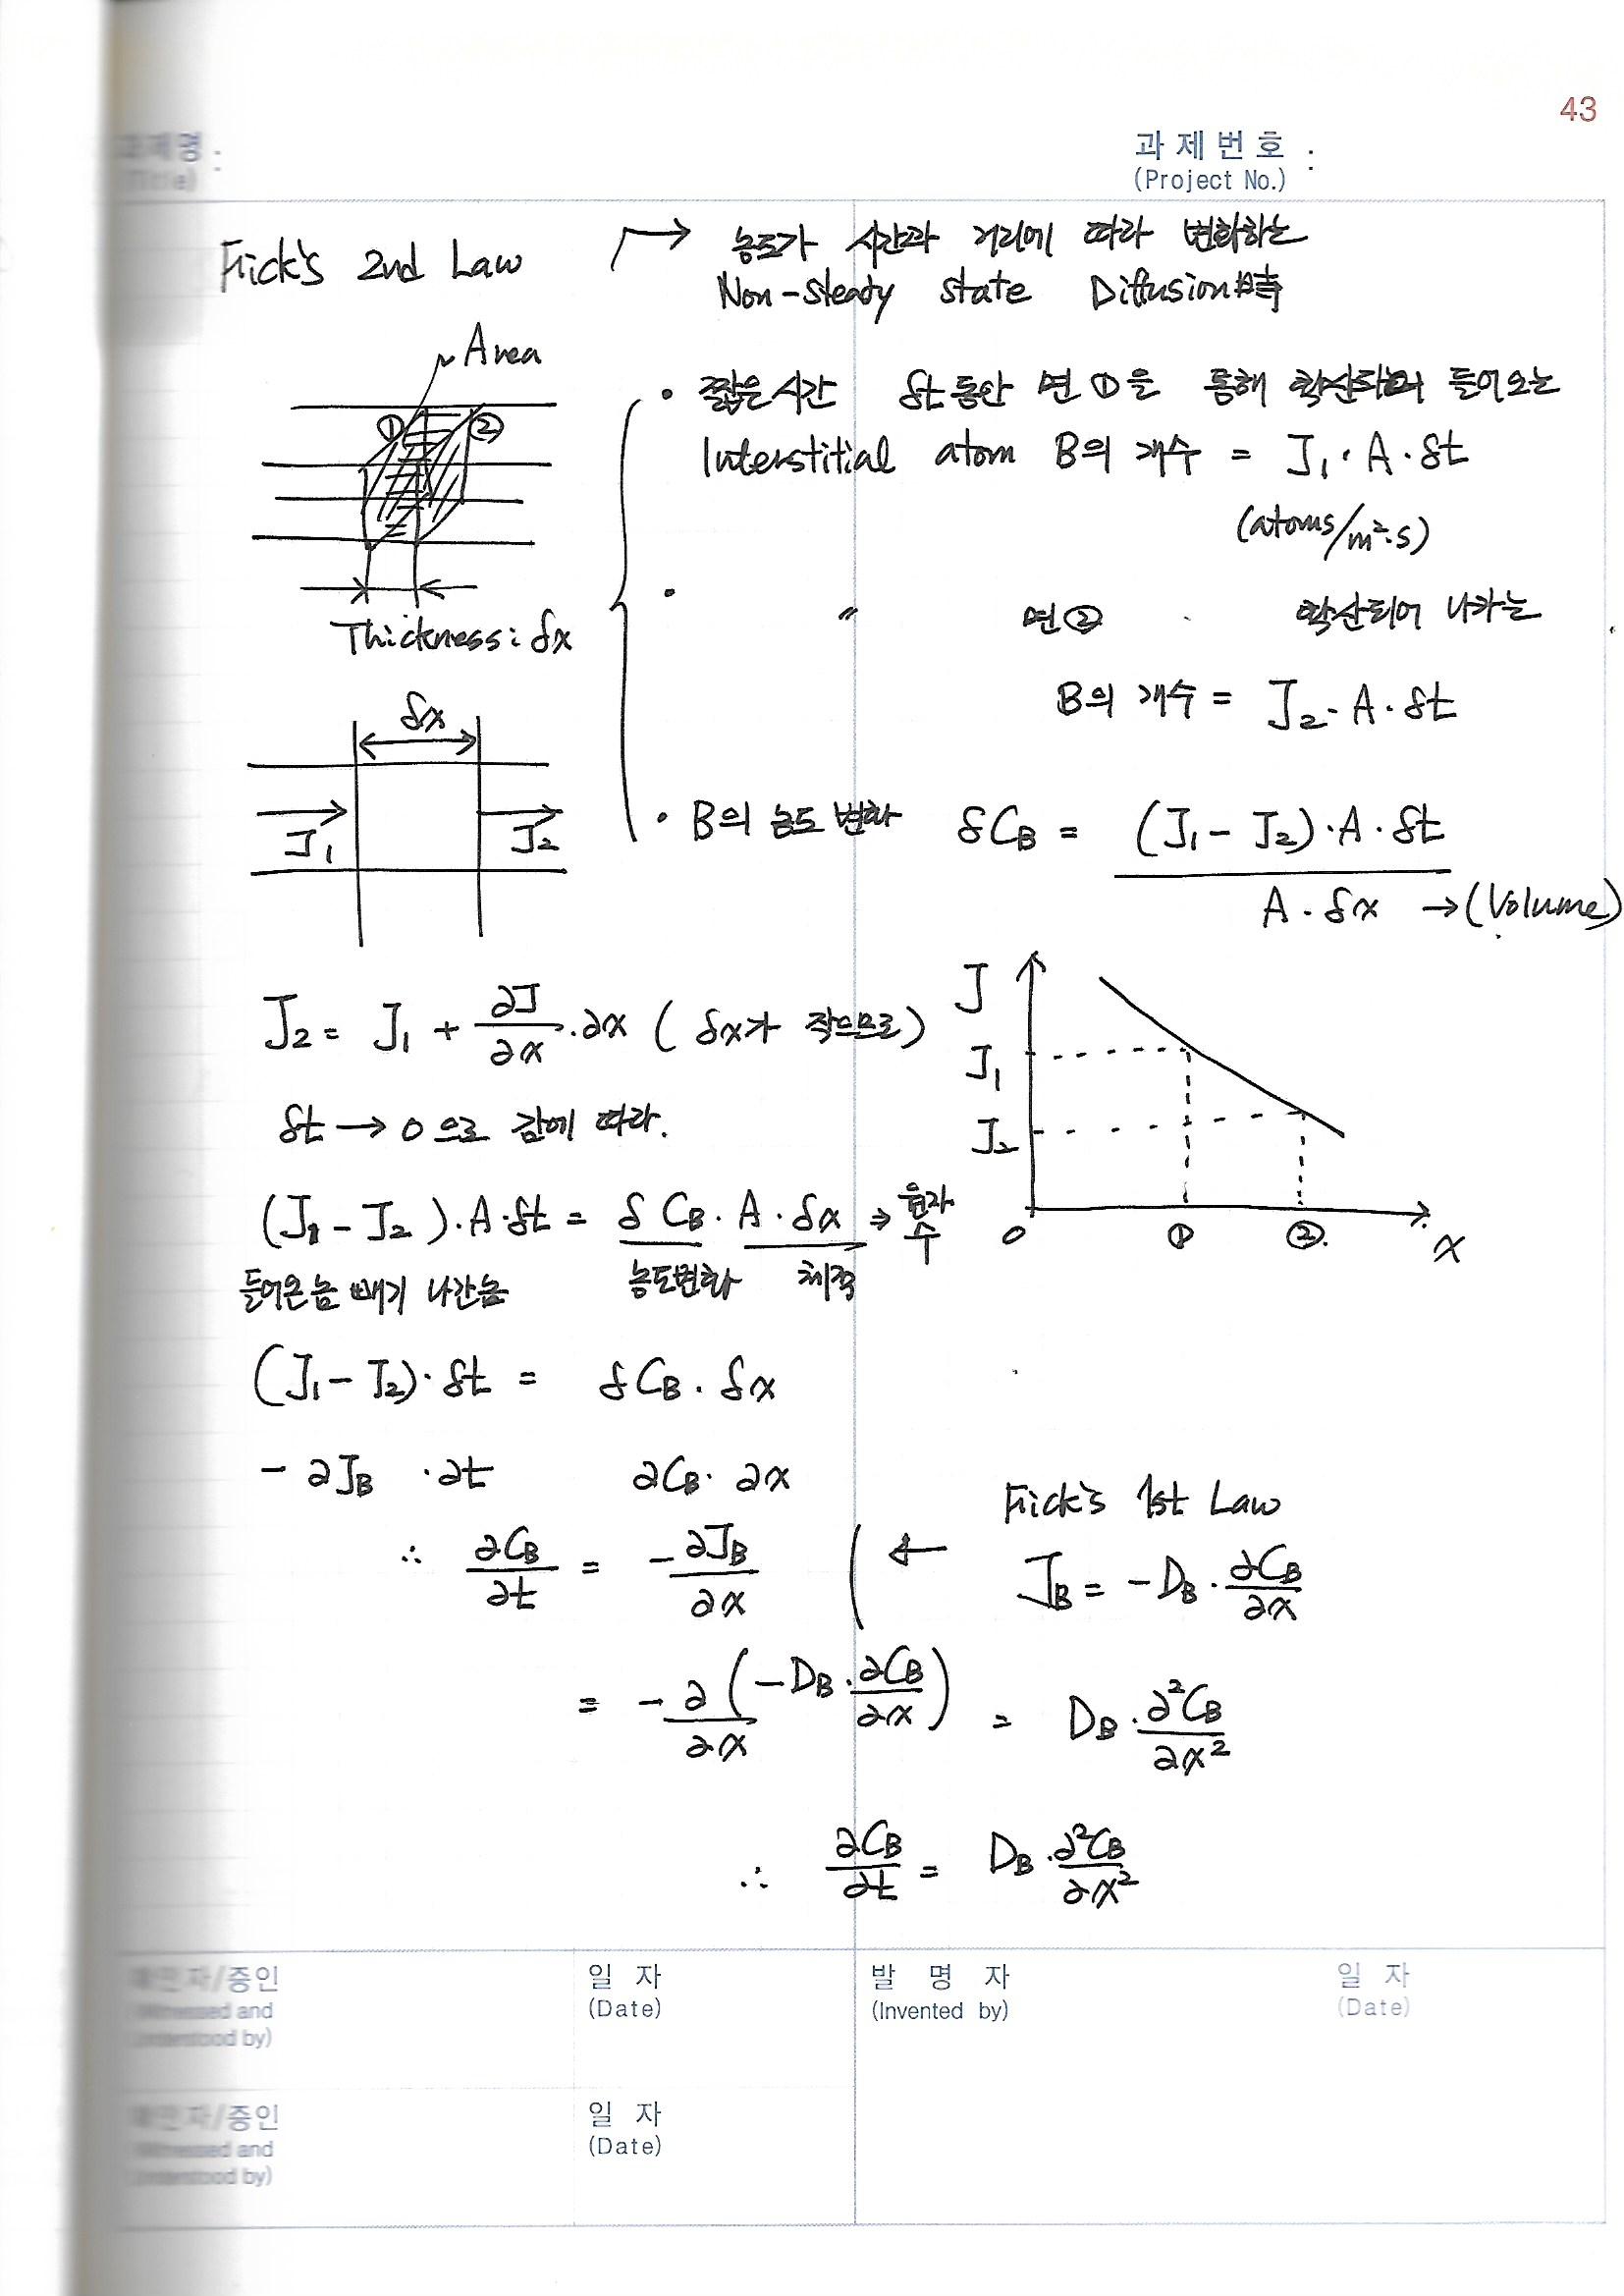 43
과제명 :
(Title)
과제번호 :
(Project No.)
Fick's 2nd Law → 농도가 시간과 거리에 따라 변화하는
Non-steady state Diffusion時
Area
① ②
Thickness: δx
• 짧은시간 δt동안 면①을 통해 확산되어 들어오는
Interstitial atom B의 개수 = J₁·A·δt
(atoms/m²·s)
• 〃 면② 확산되어 나가는
B의 개수 = J₂·A·δt
δx
J₁ J₂
• B의 농도 변화 δC_B = (J₁ - J₂)·A·δt / A·δx → (Volume)
J₂ = J₁ + ∂J/∂x · ∂x (δx가 작으므로)
J
J₁
J₂
0 ① ② x
δt → 0 으로 감에 따라.
(J₁ - J₂)·A·δt = δC_B · A·δx ⇒ 원자수
들어온놈 빼기 나간놈 농도변화 체적
(J₁ - J₂)·δt = δC_B · δx
- ∂J_B ·∂t ∂C_B · ∂x
∴ ∂C_B/∂t = -∂J_B/∂x ←
Fick's 1st Law
J_B = -D_B · ∂C_B/∂x
= -∂/∂x (-D_B · ∂C_B/∂x) = D_B · ∂²C_B/∂x²
∴ ∂C_B/∂t = D_B · ∂²C_B/∂x²
확인자/증인
(Witnessed and
Understood by)
일 자
(Date)
발 명 자
(Invented by)
일 자
(Date)
확인자/증인
(Witnessed and
Understood by)
일 자
(Date)